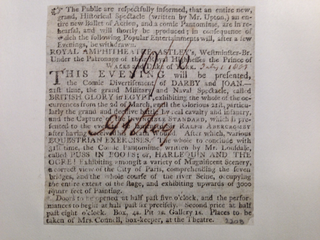 The Public are respectfully informed, that an entire new,
grand, Historical Spectacle (written by Mr. Upton,) an en-
tire new Ballet of Action, and a comic Pantomime, are in re-
hearsal, and will shortly be produced; in consequence of
which the following Popular Entertainments will, after a few
Evenings, be withdrawn.
ROYAL AMPHITHEATRE, ASTLEY's, Westminster-Br.
Under the Patronage of their Royal Highnesses the Prince of
Wales and Duke of York. July 1 1801
THIS EVENING will be presented,
the Comic Divertisement of DARBY and JOAN—
time, the grand Military and Naval Spectacle, called
BRITISH GLORY in EGYPT, exhibiting the whole of the oc-
currences from the 2d of March, until the glorious 21st, particu-
larly the grand and decisive battle, by real cavalry and infantry,
and the Capture of the INVINCIBLE STANDARD, which is pre-
sented to the RALPH ABERCROMBY
after having received After which, Various
EQUESTRIAN EXERCISES. The whole to conclude with
time, the Comic Pantomime, written by Mr. Lonsdale,
called PUSS IN BOOTS; or, HARLEQUIN AND THE
OGRE! Exhibiting amongst a variety of Magnificent Scenery,
a correct view of the City of Paris, comprehending the seven
bridges, and the whole course of the river Seine, occupying
the entire extent of the stage, and exhibiting upwards of 3000
square feet of Painting.
Doors to be opened at half past five o'clock, and the per-
formance to begin at half past six precisely. Second price at half
past eight o'clock. Box, 4s. Pit 2s. Gallery 1s. Places to be
taken of Mrs. Connell, box-keeper, at the Theatre.
Astley